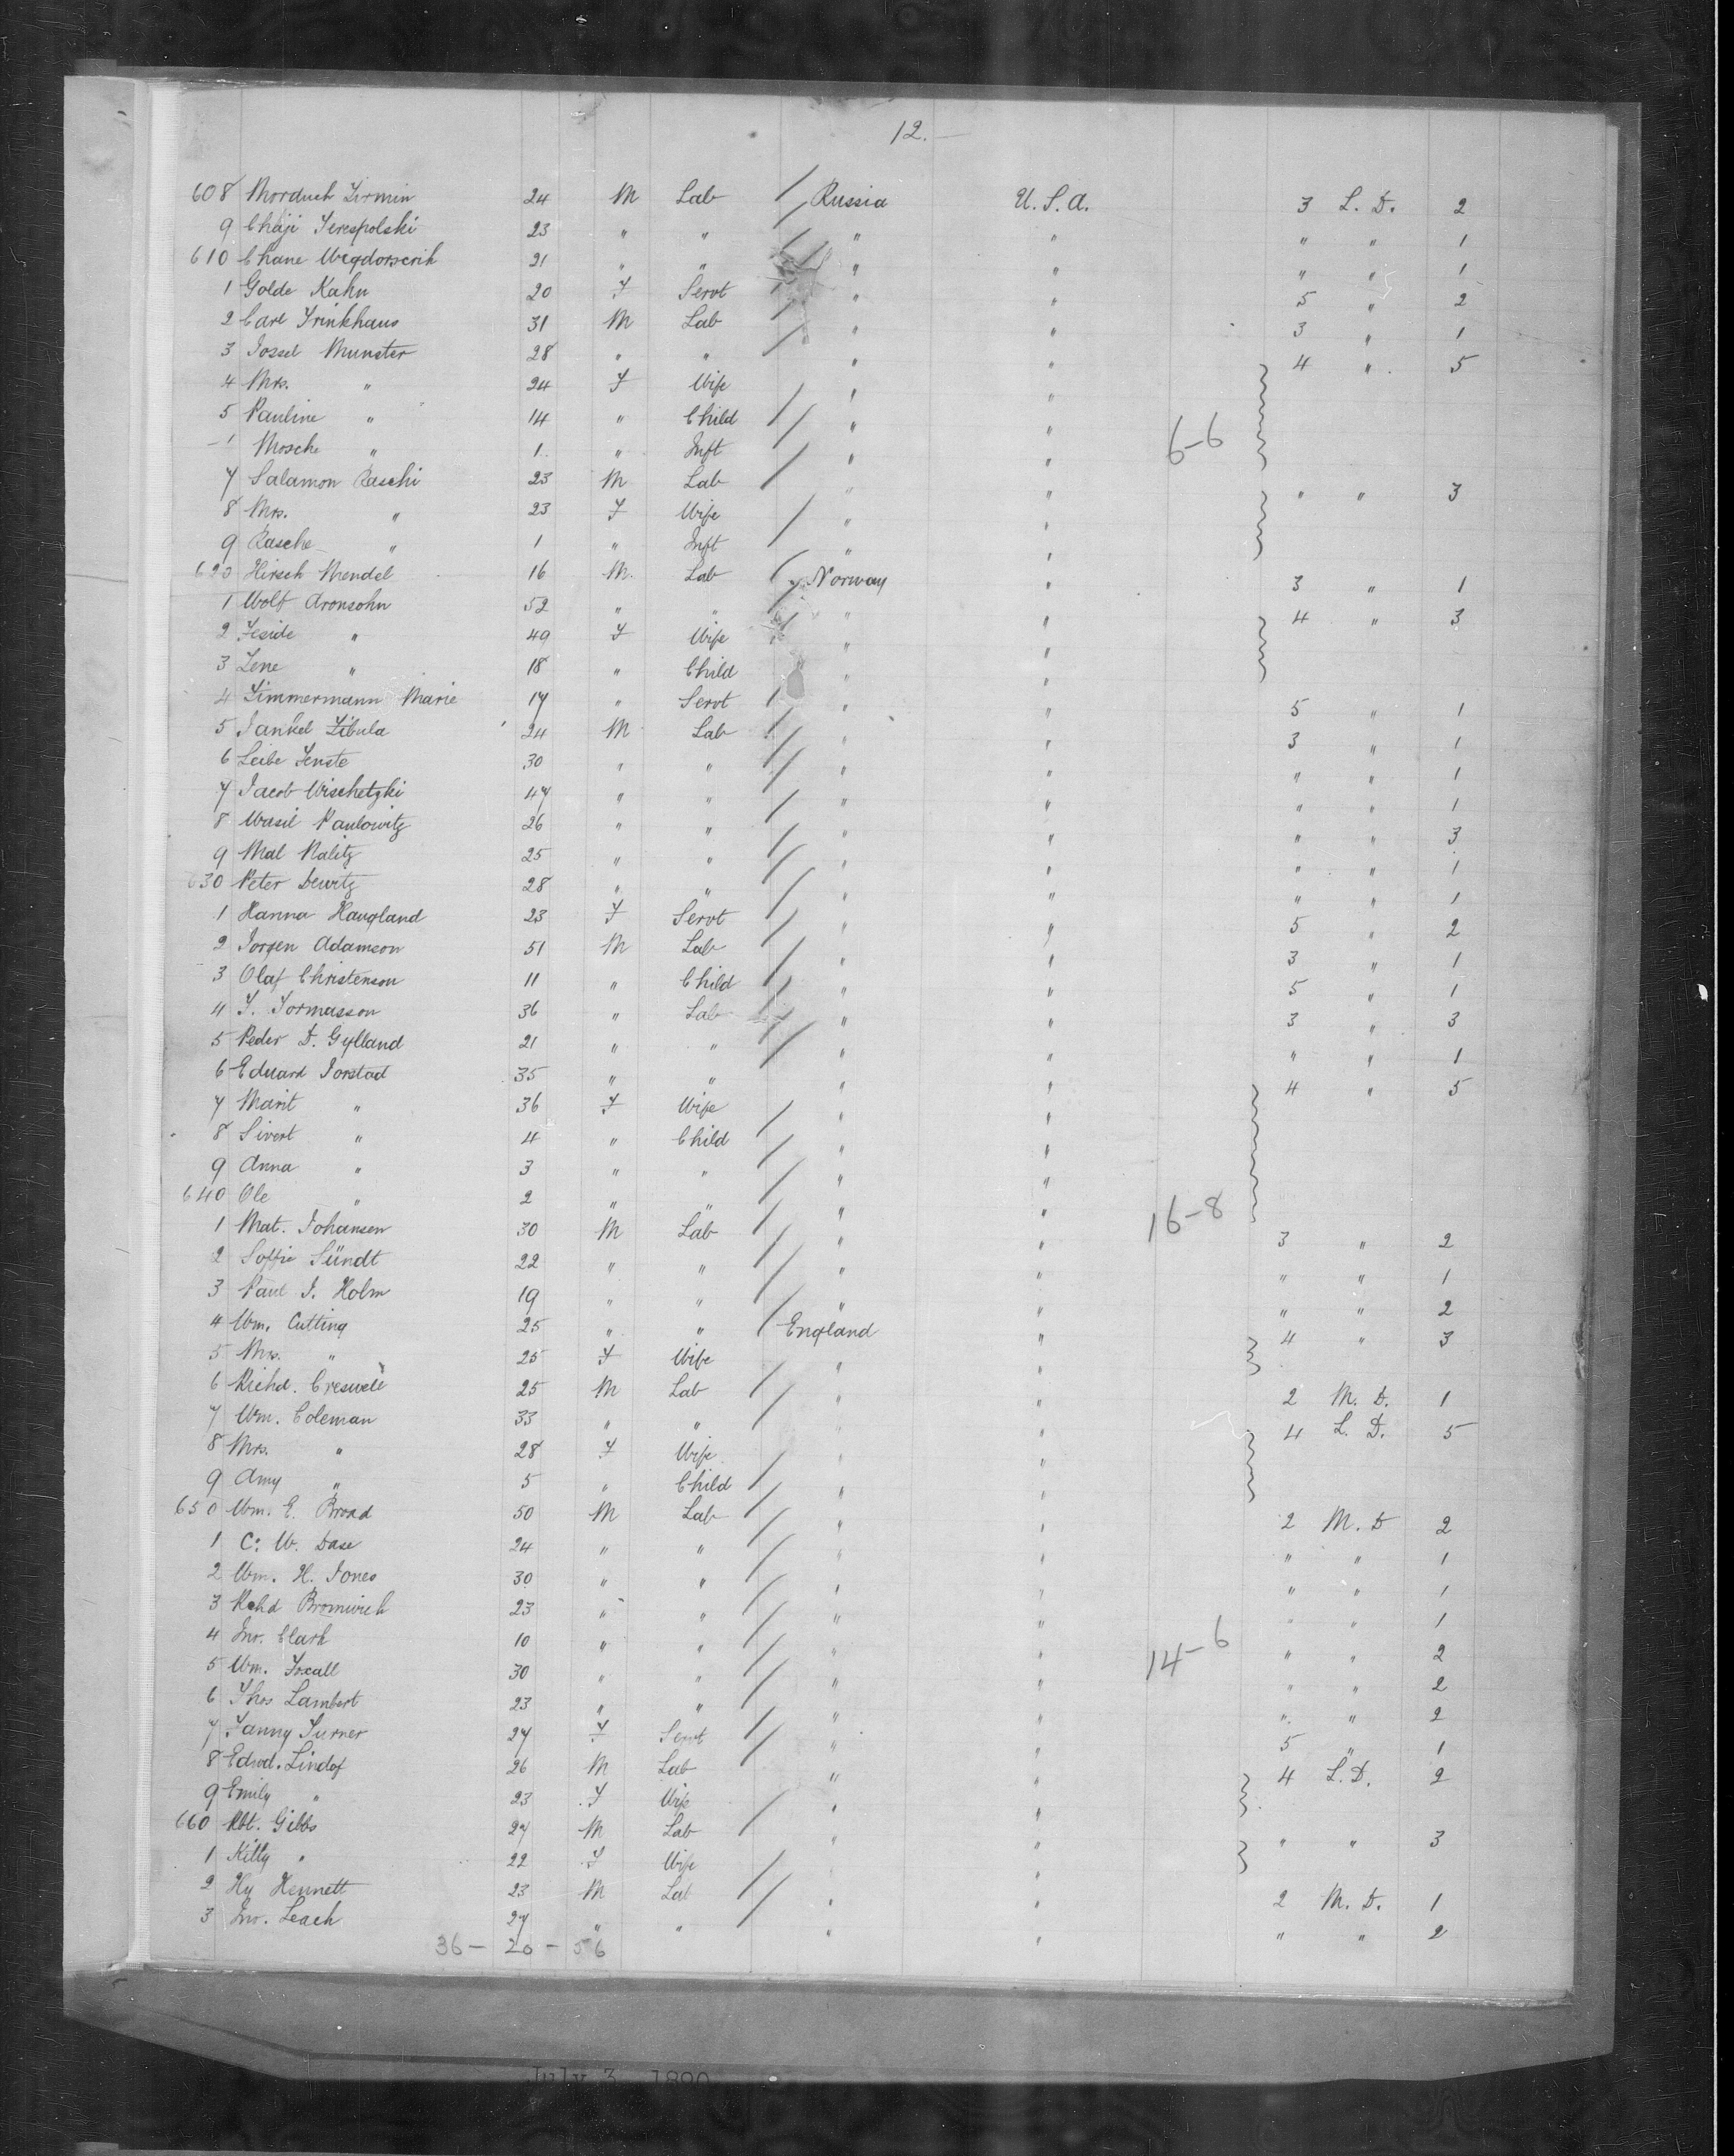 12.—
608 Morduch Zirmin 24 M Lab / Russia U.S.A. 3 L. D. 2
9 Chaji Terespolski 23 " " / " " " " 1
610 Chane 21 " " / " " " " 1
1 Golde Kahn 20 F Servt / " " 5 " 2
2 Carl Trinkhaus 31 M Lab / " " 3 " 1
3 Jossel Munster 28 " " / " " 4 " 5
4 Mrs. " 24 F Wife " "
5 Pauline " 14 " Child / " "
1 Mosche " 1 " Inft / " " 6-6
7 Salamon Raschi 23 M Lab / " " " " 3
8 Mrs. " 23 F Wife " "
9 Rasche " 1 " Inft / " "
620 Hirsch Mendel 16 M. Lab / Norway " 3 " 1
1 Wolf Aronsohn 52 " " / " " 4 " 3
2 Jeside " 49 F Wife / " "
3 Lene " 18 " Child " "
4 Zimmermann Marie 17 " Servt / " " 5 " 1
5 Jankel Zibula 24 M Lab / " " 3 " 1
6 Leibe Tenste 30 " " / " " " " 1
7 Jacob Wischetzki 47 " " / " " " " 1
8 Wasil Paulowitz 26 " " / " " " " 3
9 Mal Nalitz 25 " " / " " " " 1
630 Peter Dewitz 28 " " / " " " " 1
1 Hanna Haugland 23 F Servt / " " 5 " 2
2 Jorgen Adamson 51 M Lab / " " 3 " 1
3 Olaf Christenson 11 " Child / " " 5 " 1
4 T. Tormasson 36 " Lab / " " 3 " 3
5 Peder D. Gylland 21 " " / " " " " 1
6 Eduard Jorstad 35 " " " " 4 " 5
7 Marit " 36 F Wife / " "
8 Sivert " 4 " Child / " "
9 Anna " 3 " " / " "
640 Ole " 2 " " / " " 16-8
1 Mat. Johansen 30 M Lab / " " 3 " 2
2 Soffie Sündt 22 " " / " " " " 1
3 Paul J. Holm 19 " " / " " " " 2
4 Wm. Cutting 25 " " / England " 4 " 3
5 Mrs. " 25 F Wife " "
6 Richd. Creswele 25 M Lab / " " 2 M. D. 1
7 Wm. Coleman 33 " " / " " 4 L. D. 5
8 Mrs. " 28 F Wife " "
9 Amy " 5 " Child / " "
650 Wm. E. Broad 50 M Lab / " " 2 M. D 2
1 C. W. Dase 24 " " / " " " " 1
2 Wm. H. Jones 30 " " / " " " " 1
3 Rchd Bromwich 23 " " / " " " " 1
4 Jno. Clark 10 " " / " " 14-6 " " 2
5 Wm. 30 " " / " " " " 2
6 Thos Lambert 23 " " / " " " " 2
7 Fanny Turner 27 F Servt / " " 5 " 1
8 Edwd. 26 M Lab " " 4 L. D. 2
9 Emily " 23 F Wife " "
660 Rbt. Gibbs 27 M Lab / " " " " 3
1 Kitty " 22 F Wife " "
2 Hy Hennett 23 M Lab / " " 2 M. D. 1
3 Jno. Leach 27 " " / " " " " 2
36 - 20 - 56
July 3, 1890